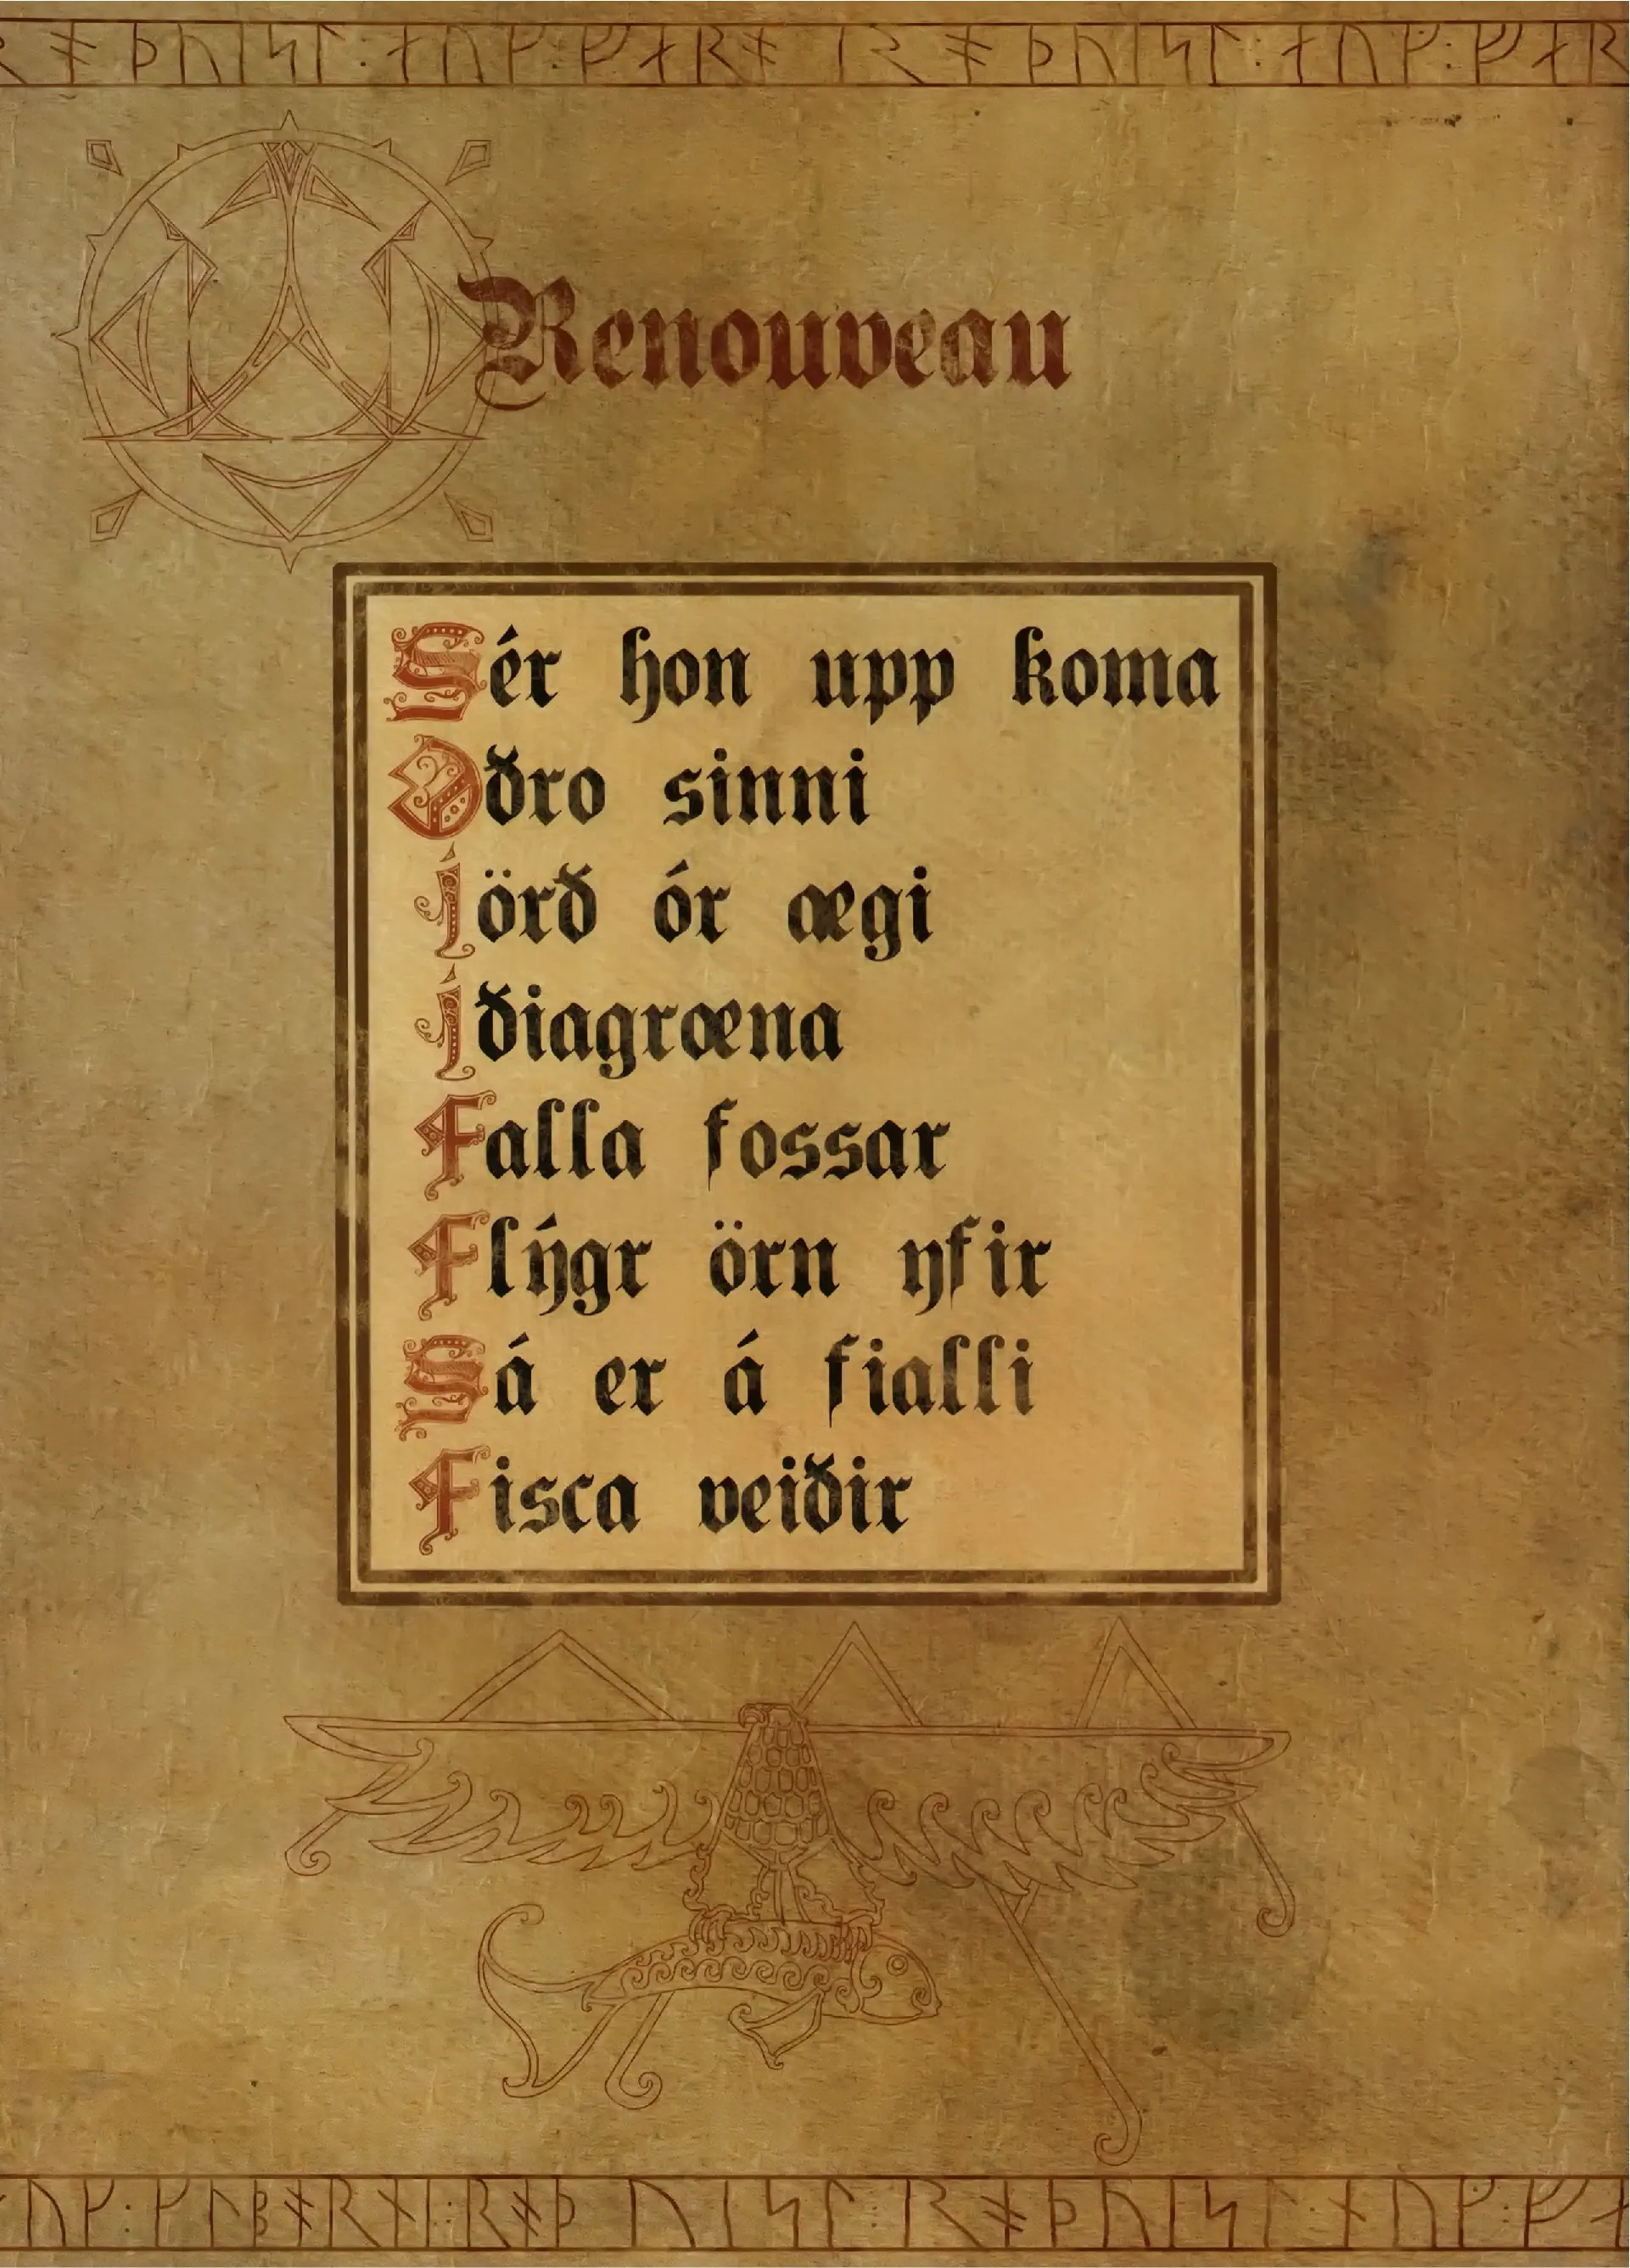 Renouveau
Sér hon upp koma
Oðro sinni
Jörð ór ægi
Iðiagrœna
Falla fossar
Flýgr örn yfir
Sá er á fialli
Fisca veiðir